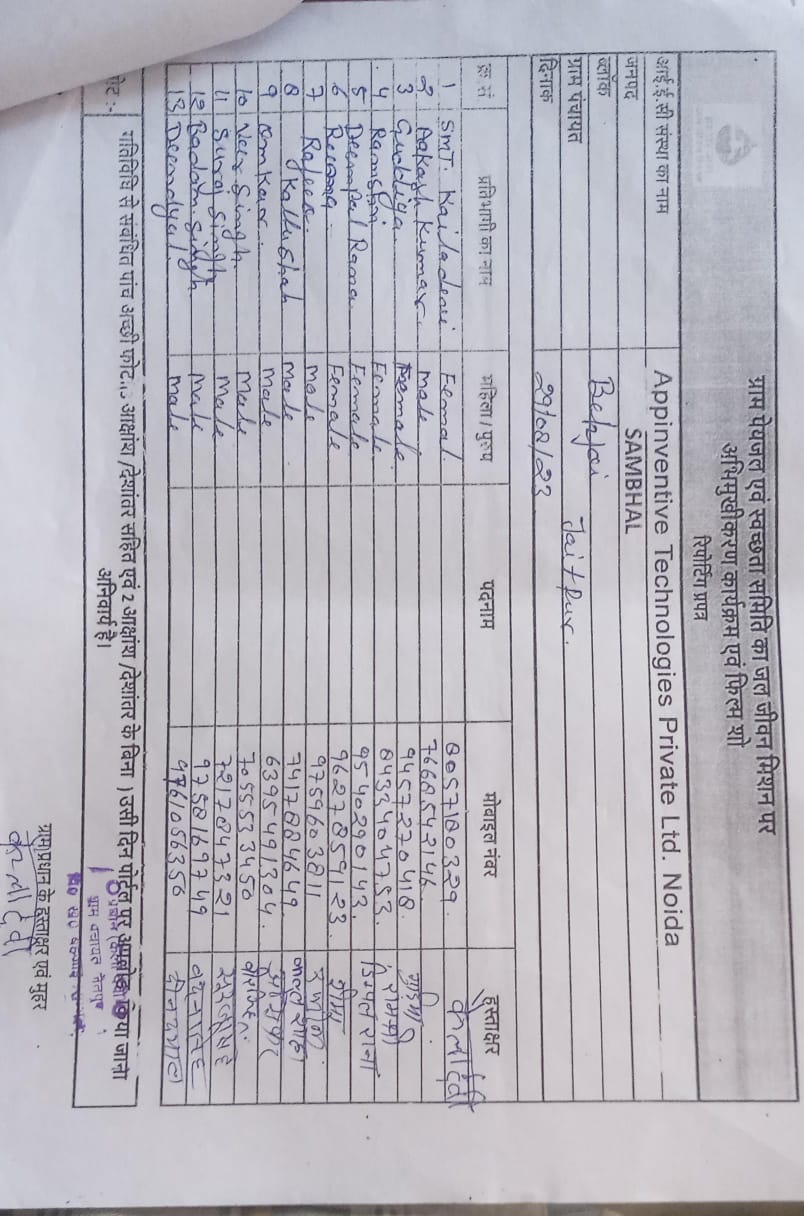 ग्राम पेयजल एवं स्वच्छता समिति का जल जीवन मिशन पर
अभिमुखीकरण कार्यक्रम एवं फिल्म शो
रिपोर्टिंग प्रपत्र
आई.ई.सी संस्था का नाम Appinventive Technologies Private Ltd. Noida
जनपद SAMBHAL
ब्लॉक
ग्राम पंचायत Jaitpur.
दिनाक 29/08/23
क्र सं प्रतिभागी का नाम महिला / पुरुष पदनाम मोबाइल नंबर हस्ताक्षर
1 SMT. Kailadevi Femal. 8057180329. कैलादेवी
2 Aakash Kumar. male 7668542146
3 Guddiya Female. 9457270418.
4 Ramshri Female. 8433404753. रामश्री
5 Deempal Rana Female 9540290143. डिम्पल राना
6 Female 9627859123.
7 Rajeev. male 9759603811
8 Kallu Shah Male 7417884649
9 Omkar. Male 6395491304.
10 Veer Singh. Male 7055533450
11 Suraj Singh Male 7217847321
12 Badan. Singh Male 9758169749
13 Deendyal. male 9761056356 दीनदयाल
नोट :- गतिविधि से संबंधित पांच अच्छी आक्षांष /देशांतर सहित एवं 2 आक्षांष /देशांतर के बिना ) उसी दिन पोर्टल पर अपलोड किया जाना
अनिवार्य है।
ग्राम पंचायत जैतपुर
ग्राम प्रधान के हस्ताक्षर एवं मुहर